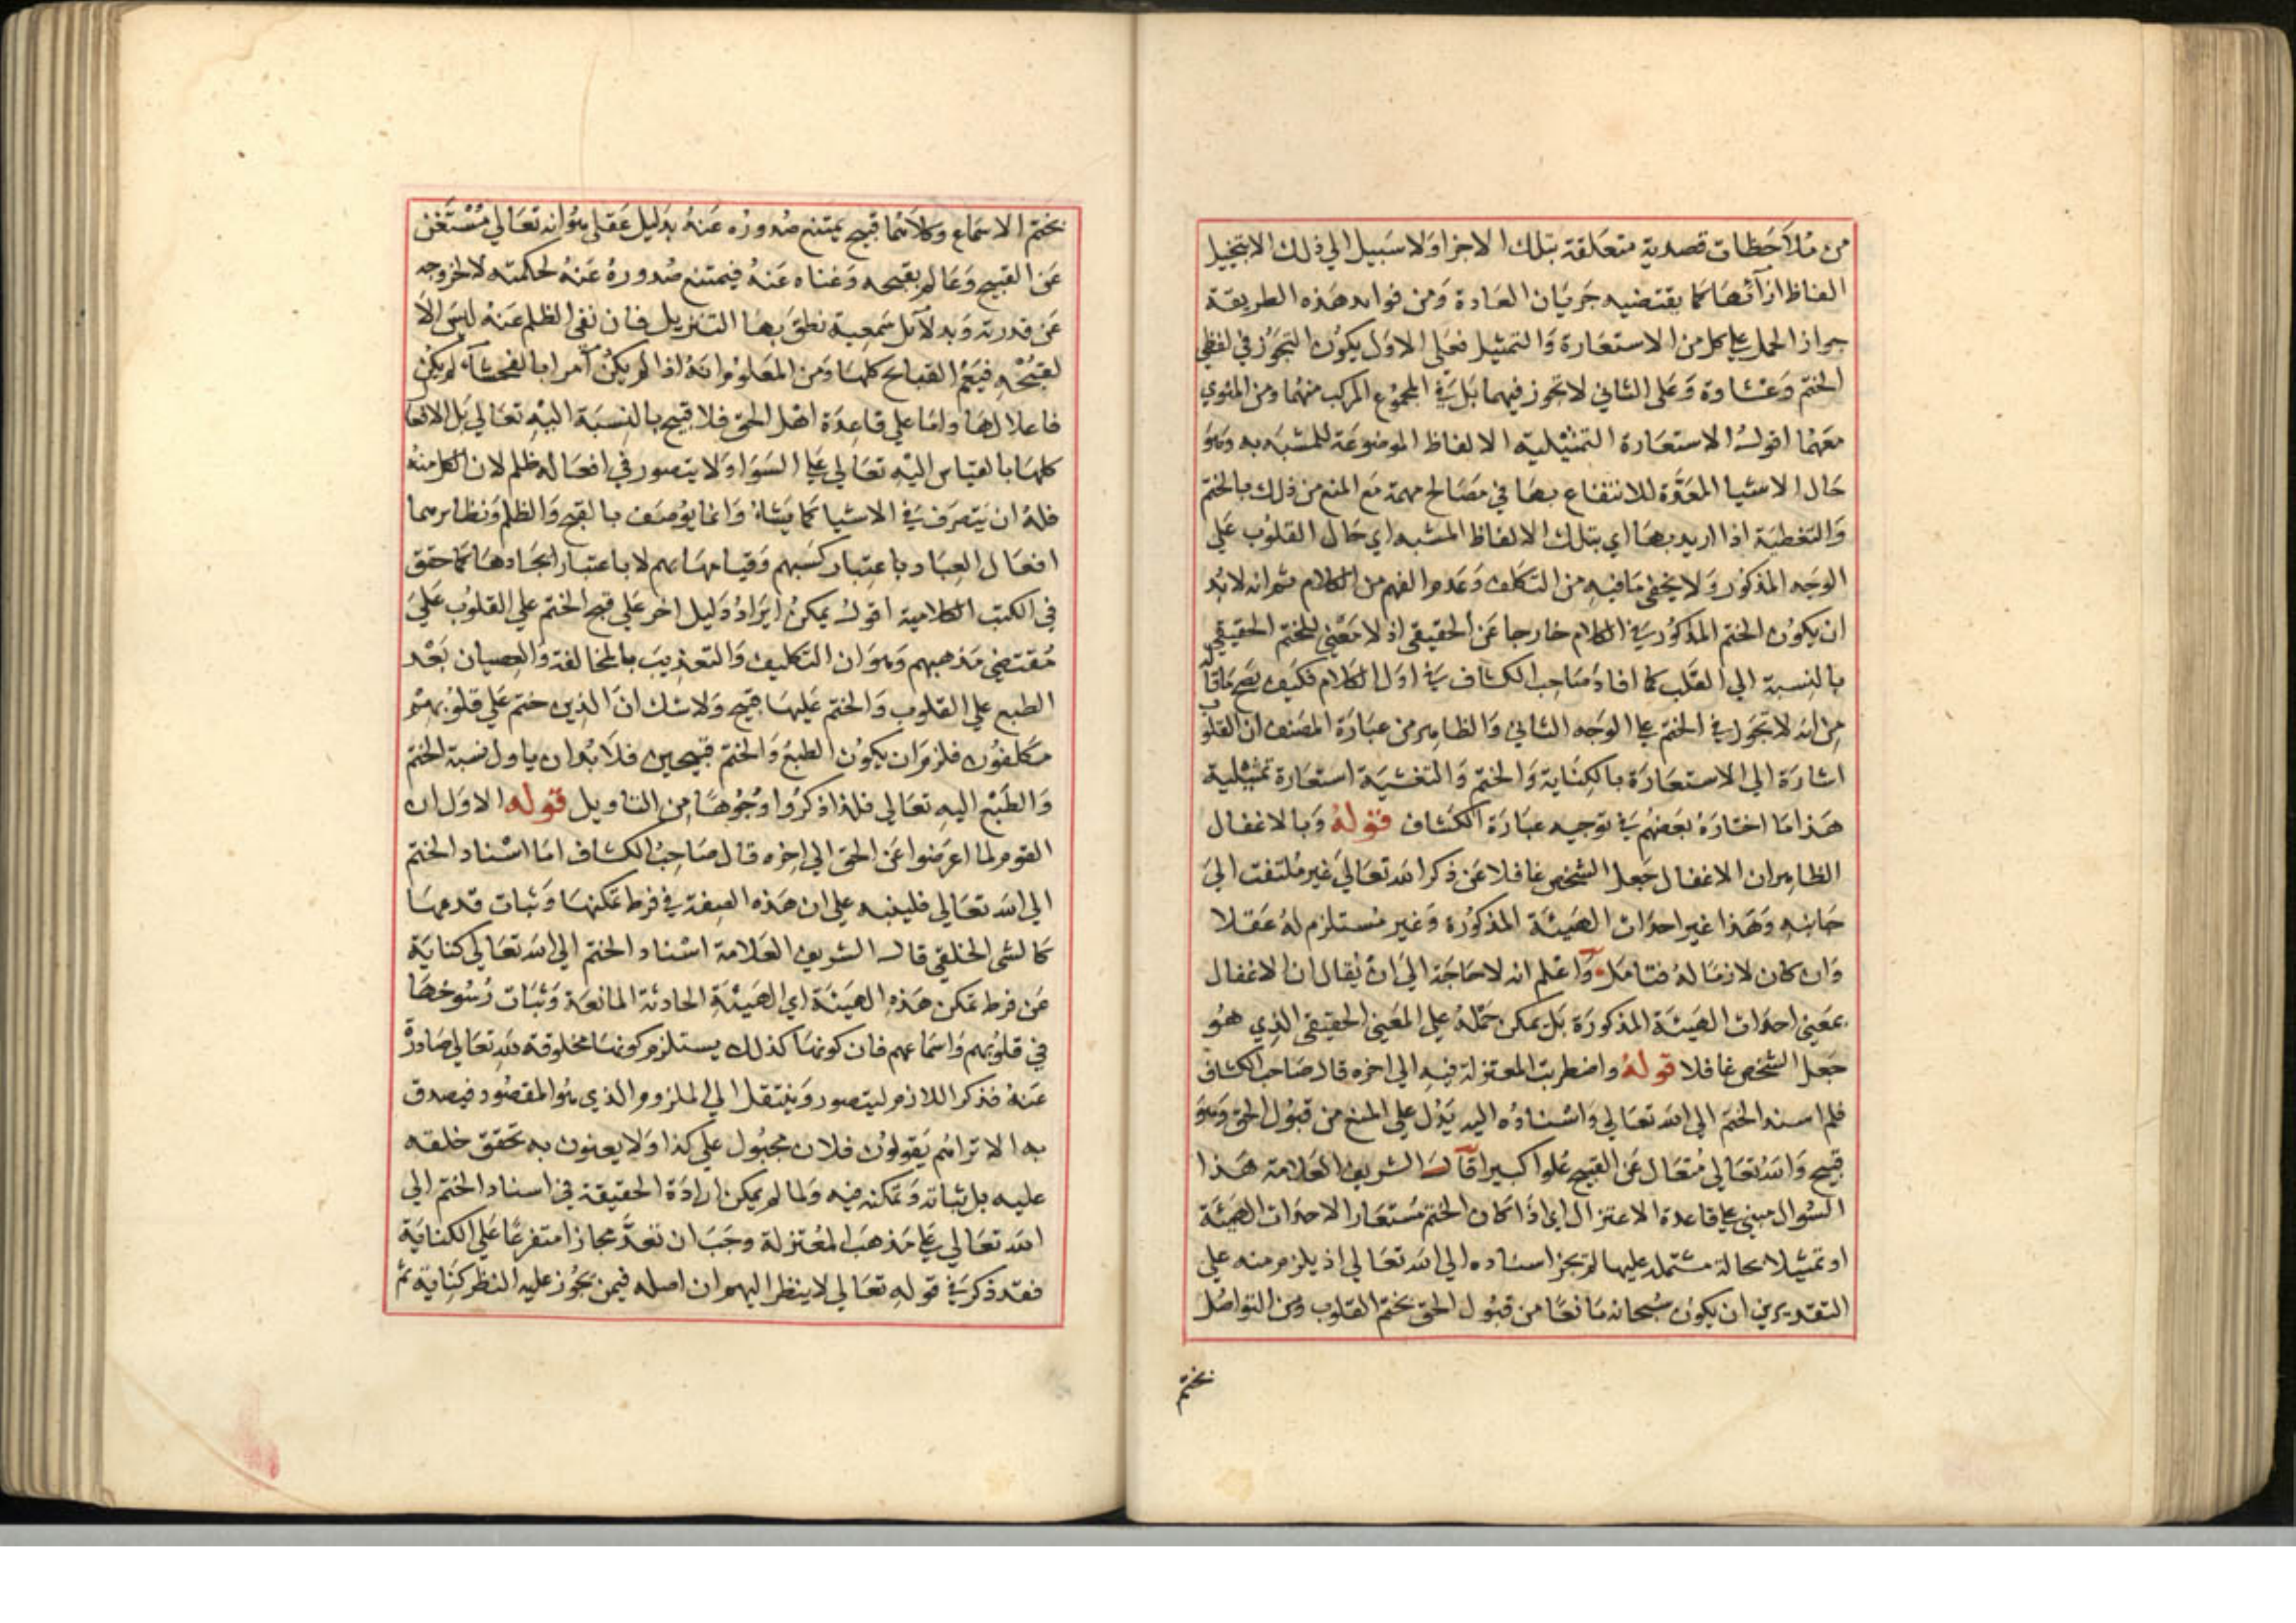 من ملاحظات قصدية متعلقة بتلك الاجزا ولا سبيل الي ذلك الا بتخيل
الفاظ ازآئها كما يقتضيه جريان العادة ومن فوايد هذه الطريقة
جواز الحمل علي كل من الاستعارة والتمثيل فعلي الاول يكون التجوز في لفظي
الختم وغشاوة وعلى الثاني لا تجوز فيهما بل في المجموع المركب منهما ومن المنوي
معهما اقول الاستعارة التمثيلية الالفاظ الموضوعة للمشبه به وهو
حال الاشيا المعدة للانتفاع بها في مصالح مهمة مع المنع من ذلك بالختم
والتغطية اذا اريد بها اي بتلك الالفاظ المشبه اي حال القلوب علي
الوجه المذكور ولا يخفى ما فيه من التكلف وعدم الفهم من الكلام ثم انه لا بد
ان يكون الختم المذكور في الكلام خارجا عن الحقيقي اذ لا معني للختم الحقيقي
بالنسبة الي القلب كما افاد صاحب الكشاف في اول الكلام فكيف يصح ما قاله
من انه لا تجوز في الختم علي الوجه الثاني والظاهر من عبارة المصنف ان القلوب
اشارة الي الاستعارة بالكناية والختم والتغشية استعارة تمثيلية
هذا ما اختاره بعضهم في توجيه عبارة الكشاف قوله وبالاغفال
الظاهر ان الاغفال جعل الشخص غافلا عن ذكر الله تعالي غير ملتفت الي
جانبه وهذا غير احداث الهيئة المذكورة وغير مستلزم له عقلا
وان كان لازما له فتامل واعلم انه لا حاجة الي ان يقال ان الاغفال
بمعني احداث الهيئة المذكورة بل يمكن حمله علي المعني الحقيقي الذي هو
جعل الشخص غافلا قوله واضطربت المعتزلة فيه الي اخره قال صاحب الكشاف
فلم اسند الختم الي الله تعالي واسناده اليه يدل علي المنع من قبول الحق وهو
قبيح والله تعالي متعال عن القبيح علوا كبيرا قال الشريف العلامة هذا
السوال مبني علي قاعدة الاعتزال اي اذا كان الختم مستعارا لاحداث الهيئة
او تمثيلا بحالة مشتملة عليها لم يجز اسناده الي الله تعالي اذ يلزم منه علي
التقديرين ان يكون سبحانه مانعا من قبول الحق بختم القلوب ومن التواصل
بختم
بختم الاسماع وكلاهما قبيح يمتنع صدوره عنه بدليل عقلي هو انه تعالي مستغن
عن القبيح وعالم بقبحه وغناه عنه فيمتنع صدوره عنه لحكمته لا لخروجه
عن قدرته وبدلآئل سمعية نطق بها التنزيل فان نفي الظلم عنه ليس الا
لقبحه فيعم القبايح كلها ومن المعلوم انه اذا لم يكن آمرا بالفحشآء لم يكن
فاعلا لها واما علي قاعدة اهل الحق فلا قبيح بالنسبة اليه تعالي بل الافعال
كلها بالقياس اليه تعالي علي السوا ولا يتصور في افعاله ظلم لان الكل منه
فله ان يتصرف في الاشيا كما يشاء وانما يوصف بالقبح والظلم ونظايرهما
افعال العباد باعتبار كسبهم وقيامها بهم لا باعتبار ايجادها كما حقق
في الكتب الكلامية اقول يمكن ايراد دليل اخر علي قبح الختم علي القلوب علي
مقتضي مذهبهم وهو ان التكليف والتعذيب بالمخالفة والعصيان بعد
الطبع علي القلوب والختم عليها قبيح ولا شك ان الذين ختم علي قلوبهم
مكلفون فلزم ان يكون الطبع والختم قبيحين فلا بد ان ياول نسبة الختم
والطبع اليه تعالي فلذا ذكروا وجوها من التاويل قوله الاول ان
القوم لما اعرضوا عن الحق الي اخره قال صاحب الكشاف اما اسناد الختم
الي الله تعالي فلينبه علي ان هذه الصفة في فرط تمكنها وثبات قدمها
كالشي الخلقي قال الشريف العلامة اسناد الختم الي الله تعالي كناية
عن فرط تمكن هذه الهيئة اي الهيئة الحادثة المانعة وثبات رسوخها
في قلوبهم واسماعهم فان كونها كذلك يستلزم كونها مخلوقة لله تعالي صادرة
عنه فذكر اللازم ليتصور وينتقل الي الملزوم الذي هو المقصود فيصدق
به الا تراهم يقولون فلان مجبول علي كذا ولا يعنون به تحقق خلقه
عليه بل ثباته وتمكنه فيه ولما لم يمكن ارادة الحقيقة في اسناد الختم الي
الله تعالي علي مذهب المعتزلة وجب ان تعد مجازا متفرعا علي الكناية
فقد ذكر في قوله تعالي لا ينظر اليهم ان اصله فيمن يجوز عليه النظر كناية ثم